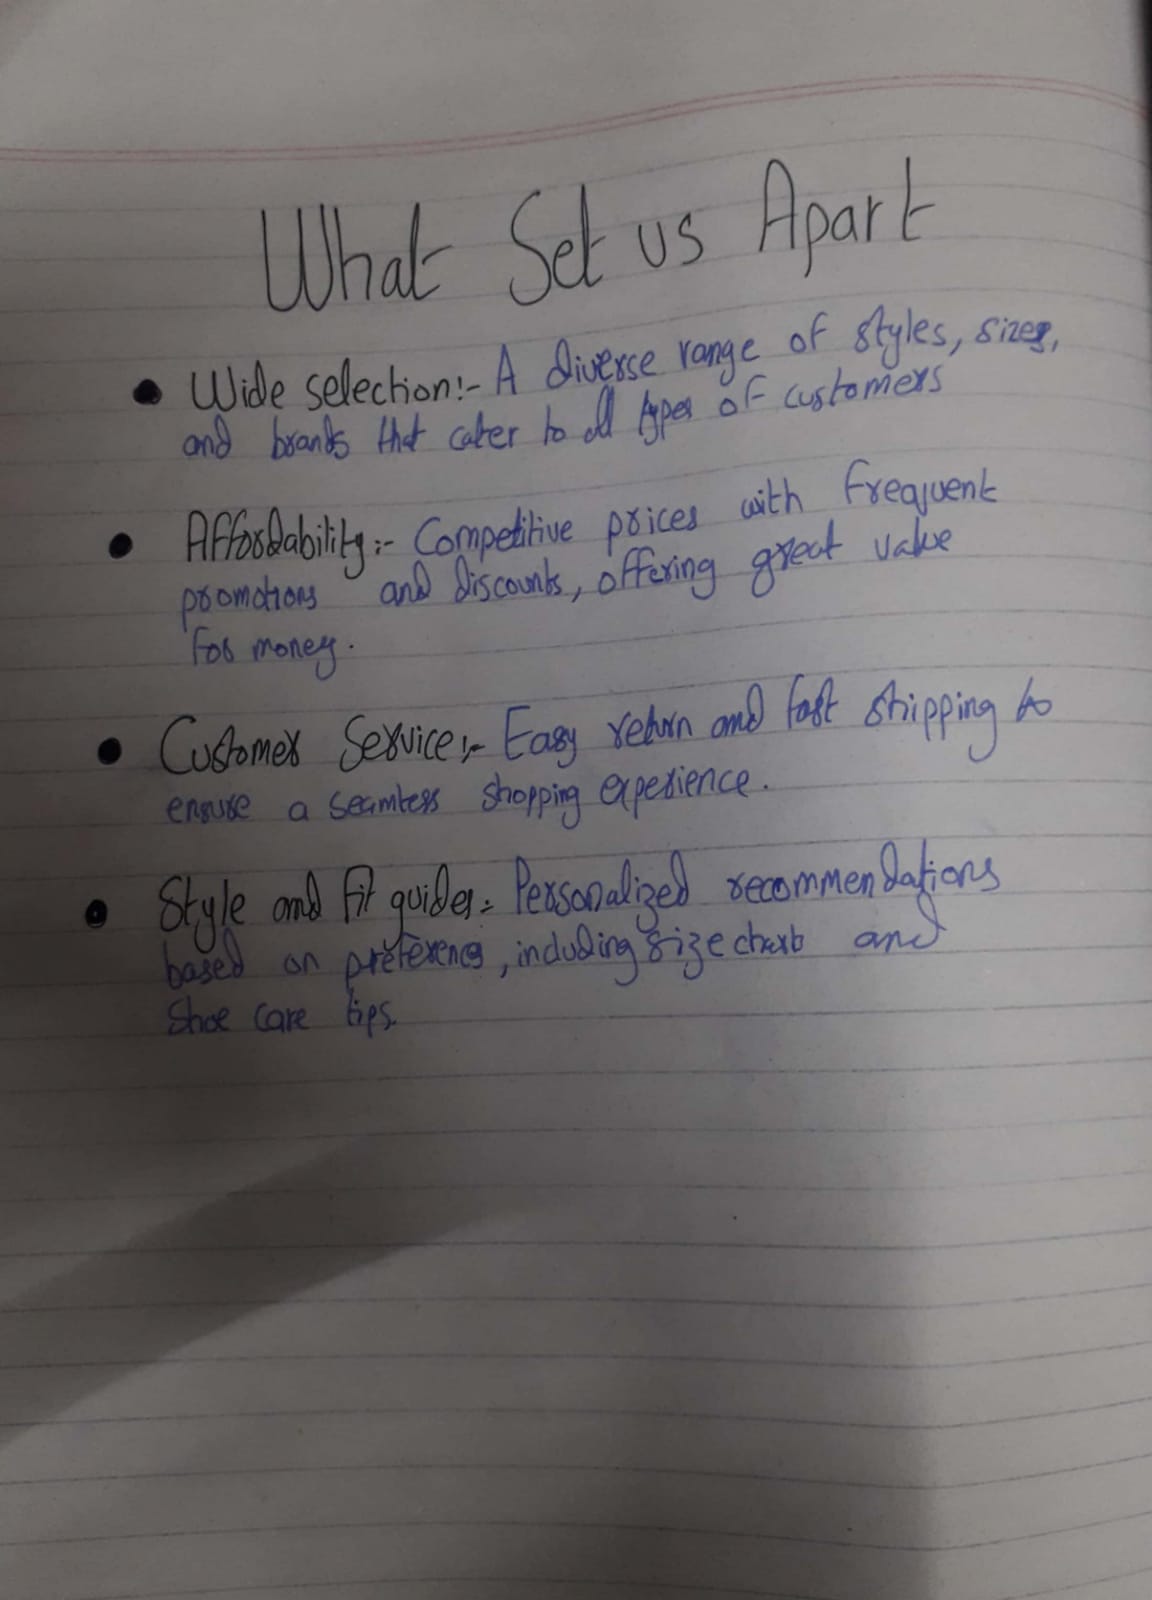 What Set us Apart
• Wide selection:- A diverse range of styles, sizes,
and brands that cater to all types of customers
• Affordability:- Competitive prices with frequent
promotions and discounts, offering great value
for money.
• Customer Service:- Easy return and fast shipping to
ensure a seamless shopping experience.
• Style and Fit guides:- Personalized recommendations
based on preferences, including size charts and
Shoe care tips.